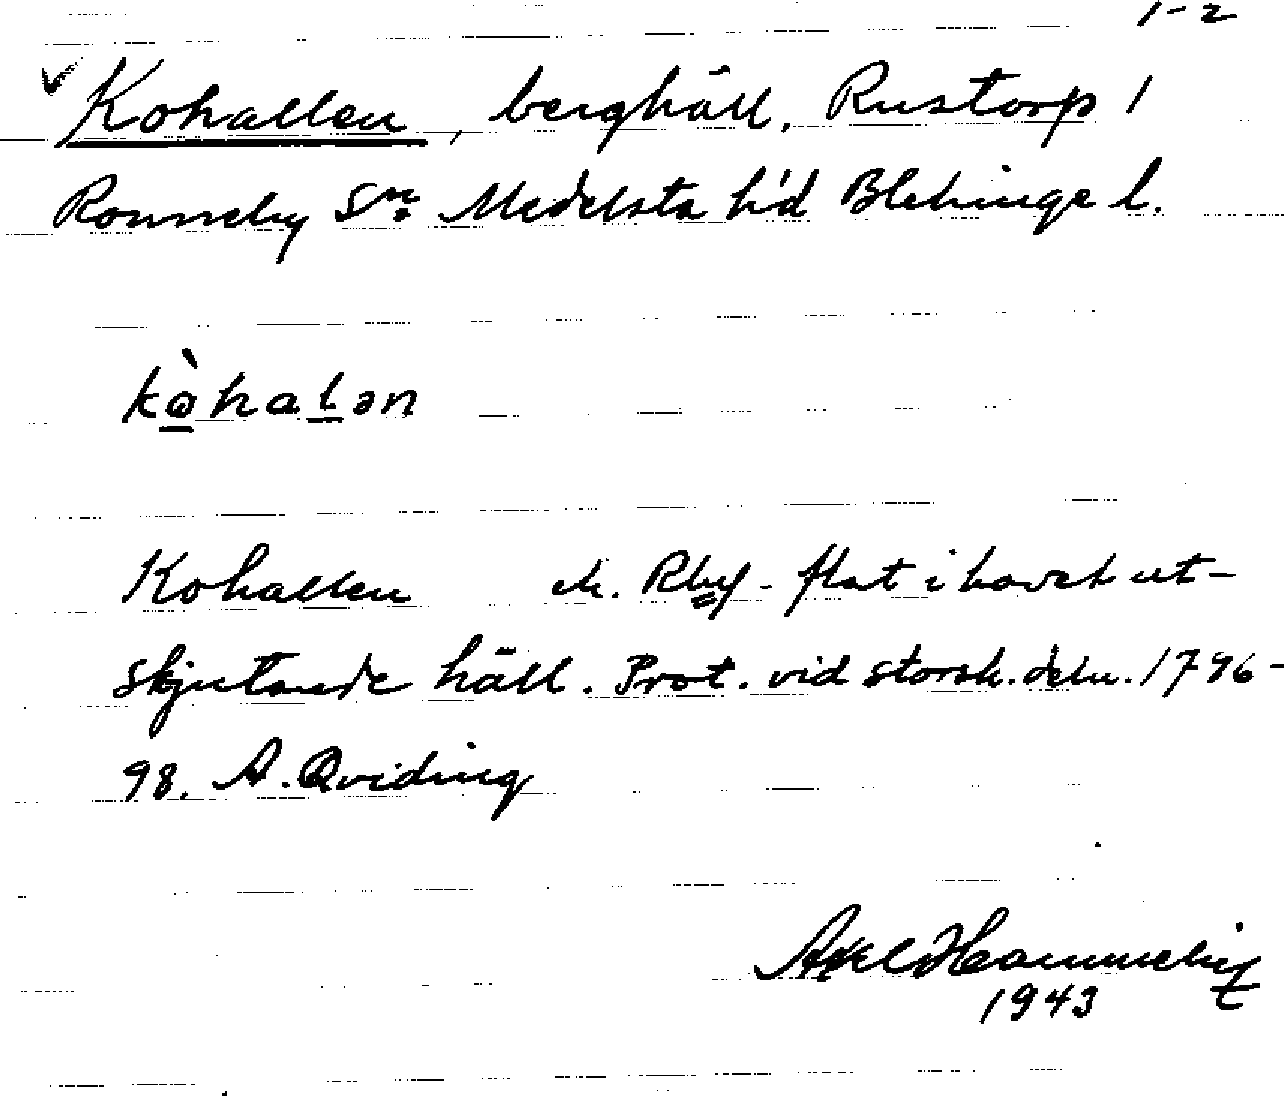 1-2
Kohallen, berghäll, Rustorp 1
Ronneby Sn: Medelsta h'd Blekinge l.
kòhalən
Kohallen ek. Rby - flat i havet ut-
skjutande häll. Prot. vid storsk. deln. 1796-
98. A. Qviding
Axel
1943